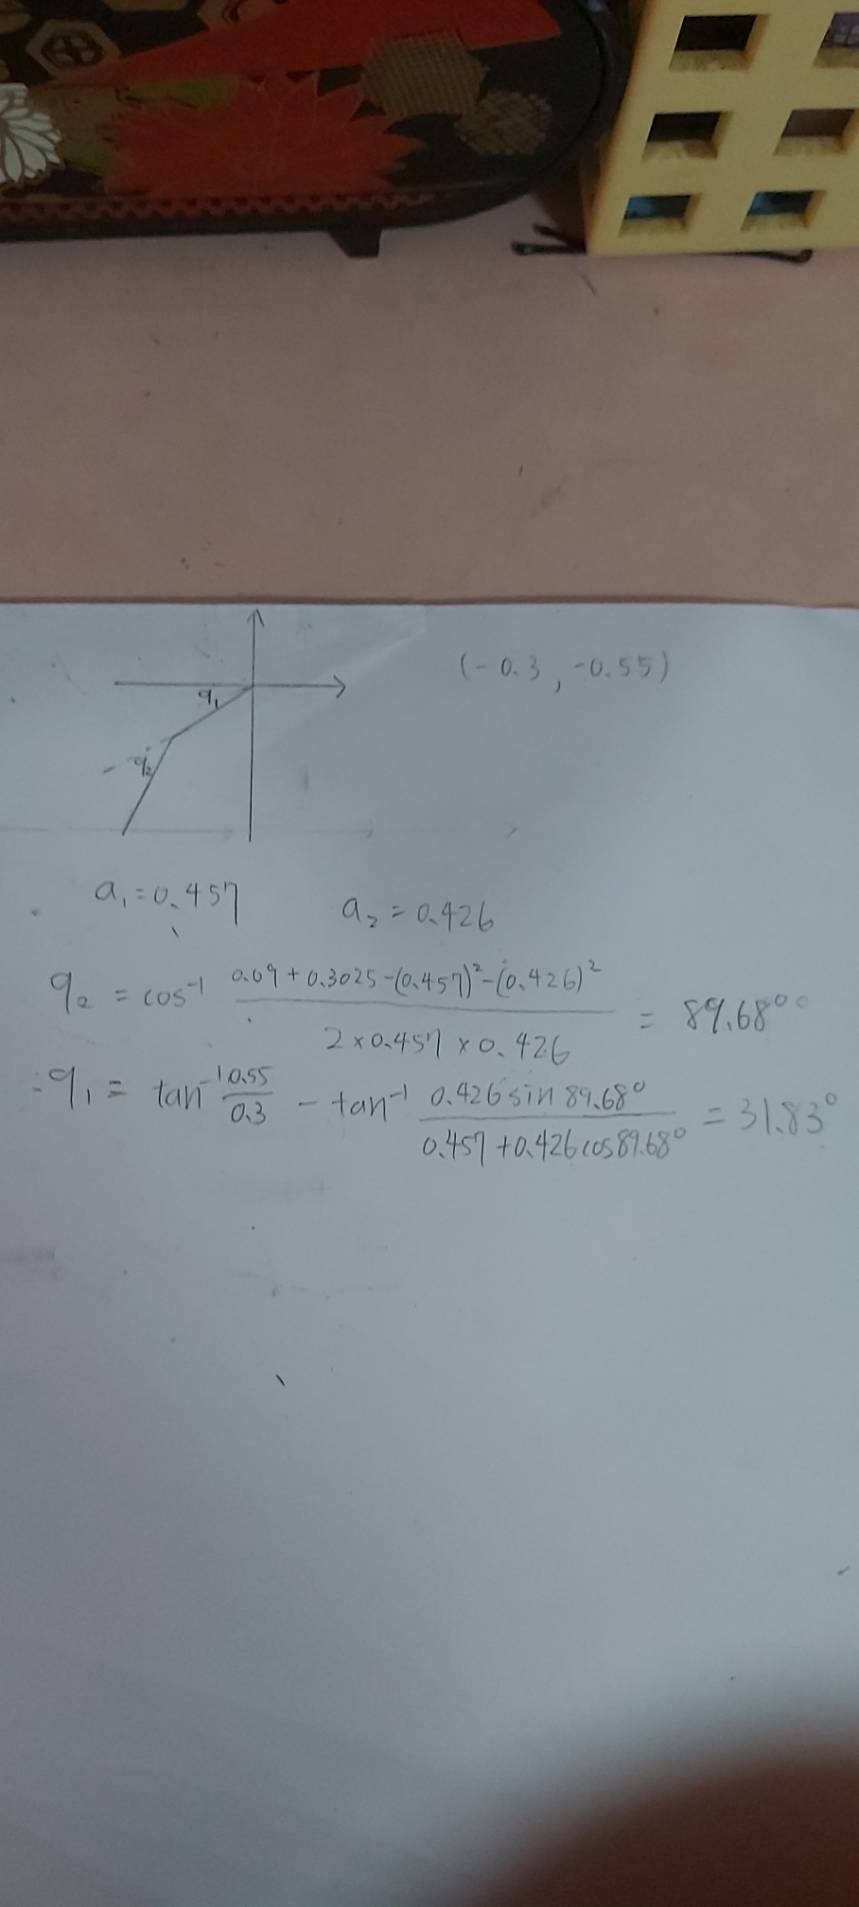 (-0.3, -0.55)
q₁
q₂
a₁ = 0.457 a₂ = 0.426
q₂ = cos⁻¹ (0.09 + 0.3025 - (0.457)² - (0.426)²) / (2 × 0.457 × 0.426) = 89.68°
q₁ = tan⁻¹ 0.55/0.3 - tan⁻¹ (0.426 sin 89.68°) / (0.457 + 0.426 cos 89.68°) = 31.83°